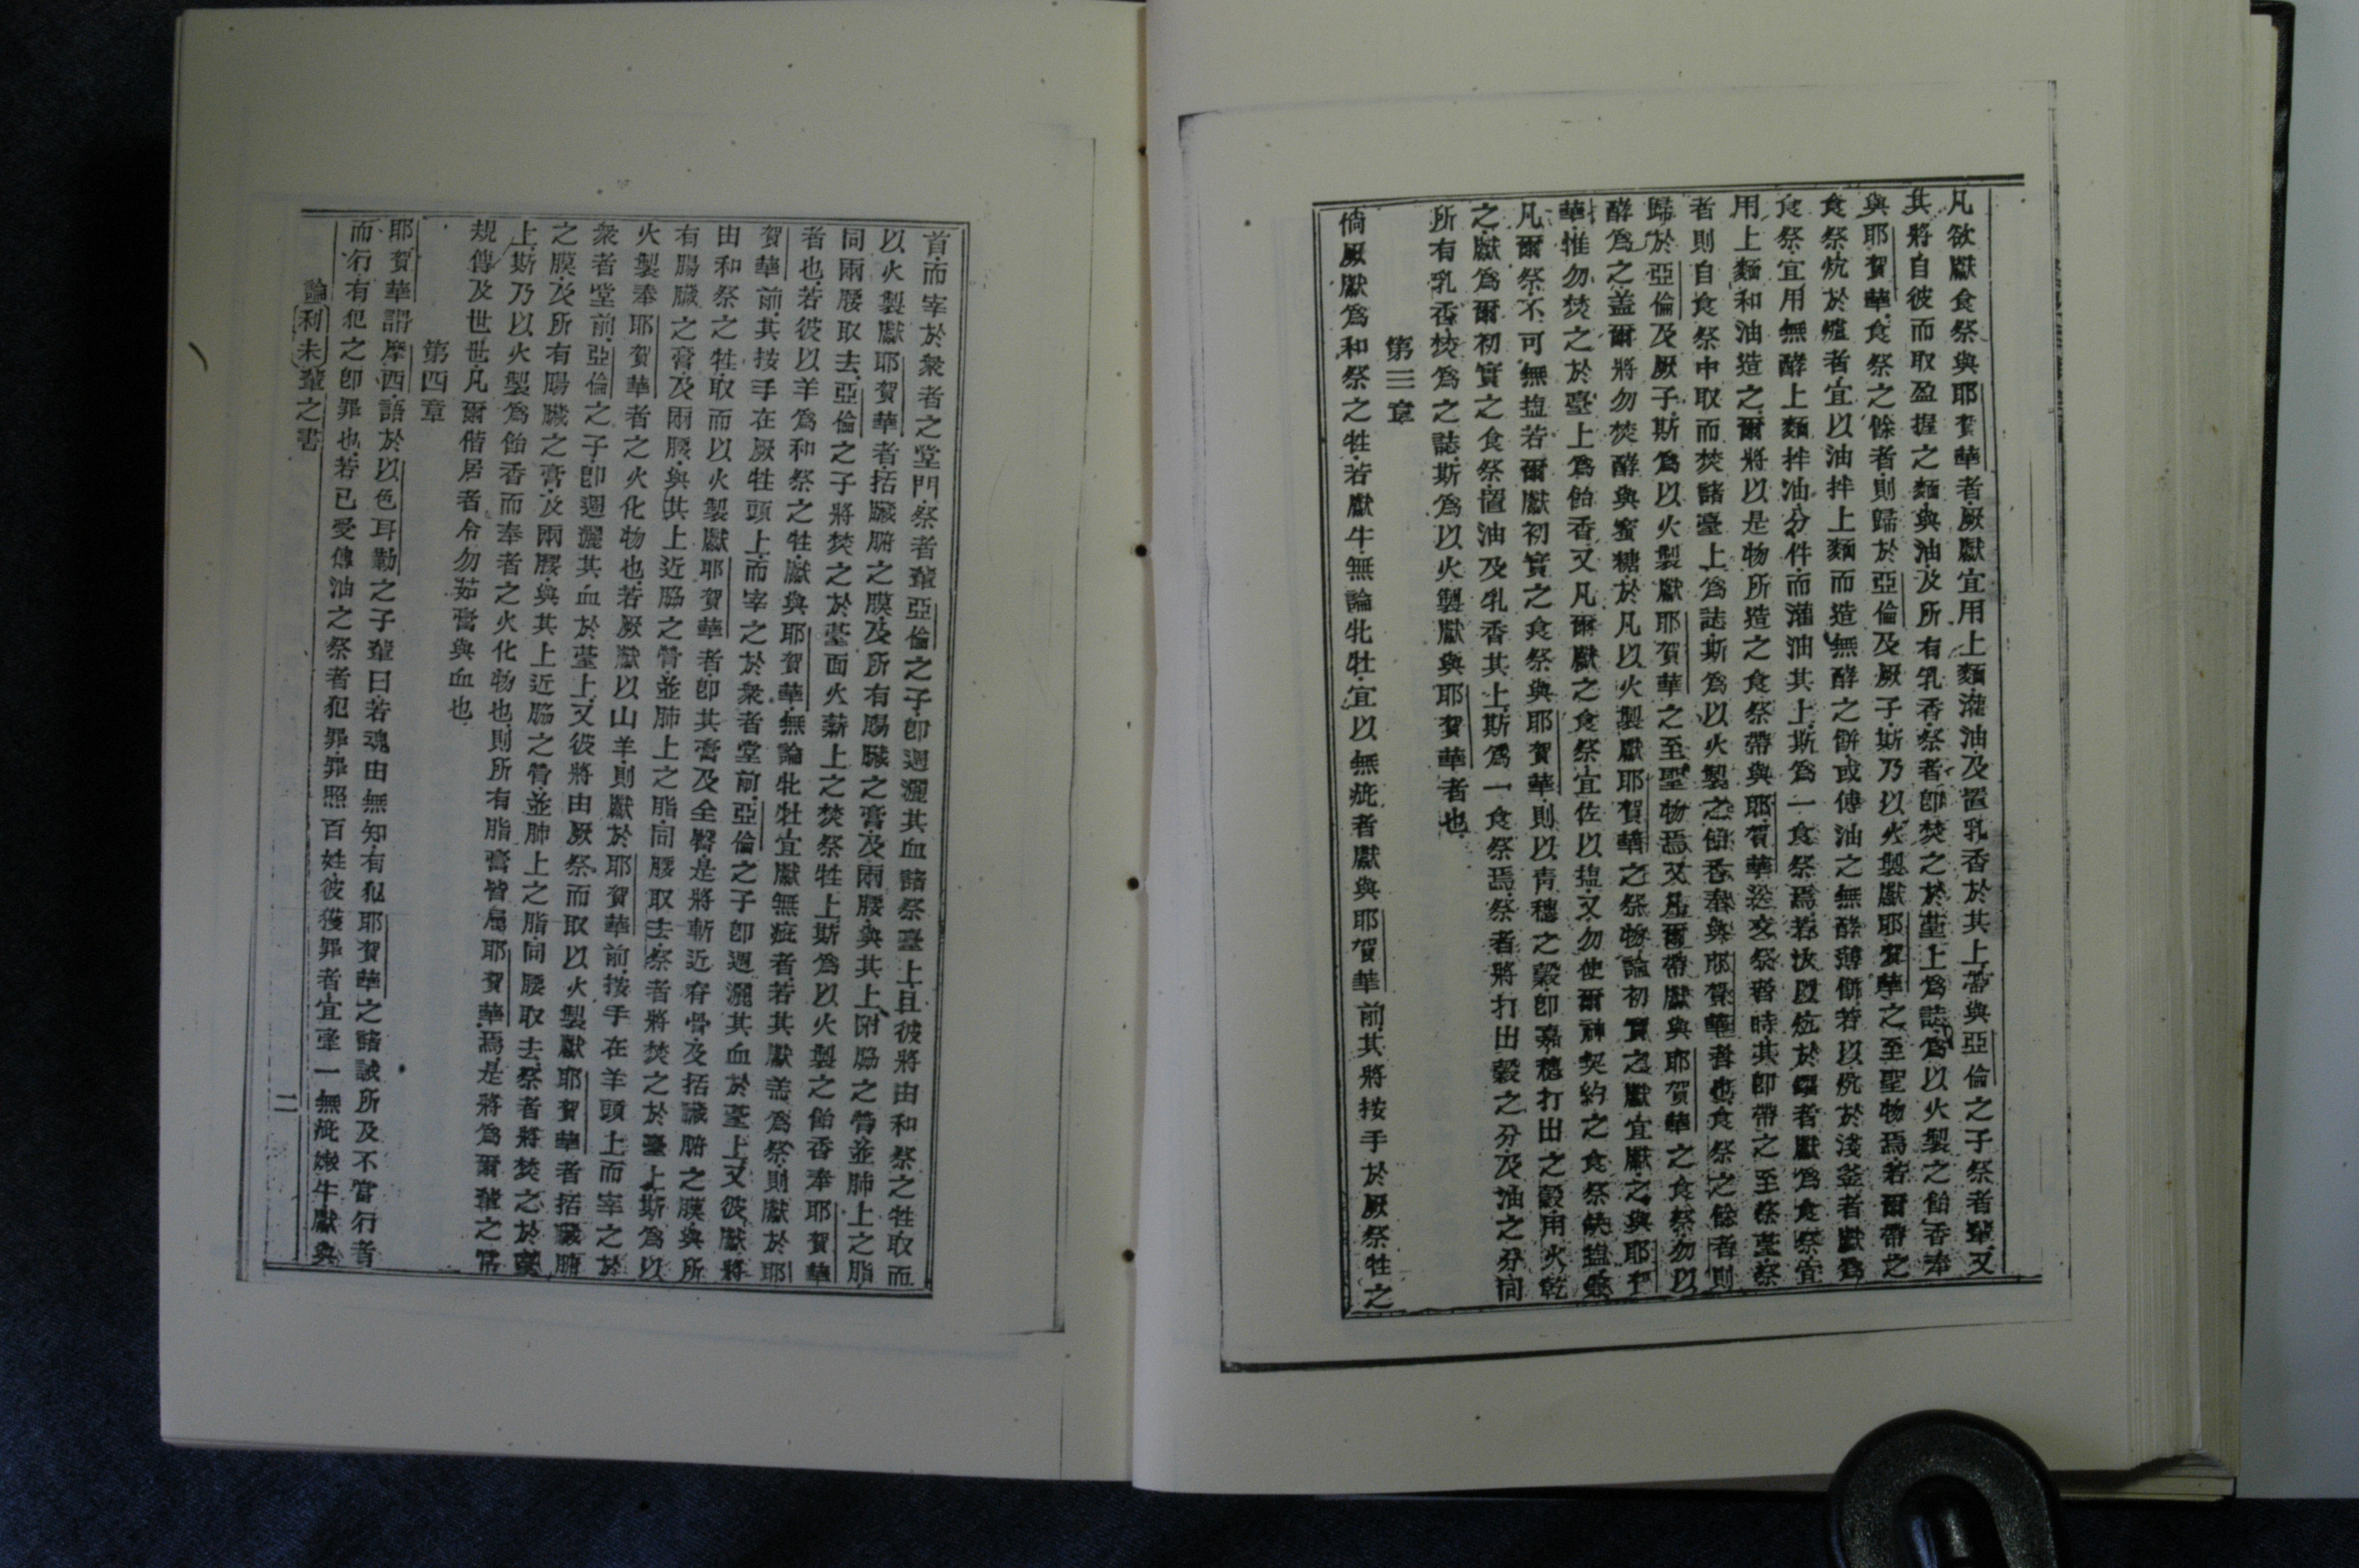 凡欲獻食祭與耶賀華者厥獻宜用上麵灌油及置乳香於其上帶與亞倫之子祭者輩又
其將自彼而取盈握之麵與油及所有乳香祭者卽焚之於臺上爲誌爲以火製之飴香奉
與耶賀華食祭之餘者則歸於亞倫及厥子斯乃以火製獻耶賀華之至聖物焉若爾帶之
食祭炕於爐者宜以油拌上麵而造無酵之餅或傅油之無酵薄餅若以炕於淺釜者獻爲
食祭宜用無酵上麵拌油分件而灌油其上斯爲一食祭焉若汝以炕於鑼者獻爲食祭宜
用上麵和油造之爾將以是物所造之食祭帶與耶賀華送交祭者時其卽帶之至祭臺祭
者則自食祭中取而焚諸臺上爲誌斯爲以火製之飴香奉與耶賀華者也食祭之餘者則
歸於亞倫及厥子斯爲以火製獻耶賀華之至聖物焉又凡爾帶獻與耶賀華之食祭勿以
酵爲之蓋爾將勿焚酵與蜜糖於凡以火製獻耶賀華之祭物論初實之獻宜獻之與耶賀
華惟勿焚之於臺上爲飴香又凡爾獻之食祭宜佐以塩又勿使爾神契約之食祭缺塩
凡爾祭不可無塩若爾獻初實之食祭與耶賀華則以青穗之穀卽嘉穗打出之穀用火乾
之獻爲爾初實之食祭置油及乳香其上斯爲一食祭焉祭者將打出穀之分及油之分同
所有乳香焚爲之誌斯爲以火製獻與耶賀華者也
第三章
倘厥獻爲和祭之牲若獻牛無論牝牡宜以無疵者獻與耶賀華前其將按手於厥祭牲之
首而宰於衆者之堂門祭者輩亞倫之子卽週灑其血諸祭臺上且彼將由和祭之牲取而
以火製獻耶賀華者括臟腑之膜及所有腸臟之膏及兩腰與其上附脇之膋並肺上之脂
同兩腰取去亞倫之子將焚之於臺面火薪上之焚祭牲上斯爲以火製之飴香奉耶賀華
者也若彼以羊爲和祭之牲獻與耶賀華無論牝牡宜獻無疵者若其獻羔爲祭則獻於耶
賀華前其按手在厥牲頭上而宰之於衆者堂前亞倫之子卽週灑其血於臺上又彼獻將
由和祭之牲取而以火製獻耶賀華者卽其膏及全臀是將斬近脊骨及括臟腑之膜與所
有腸臟之膏及兩腰與其上近脇之膋並肺上之脂同腰取去祭者將焚之於臺上斯爲以
火製奉耶賀華者之火化物也若厥獻以山羊則獻於耶賀華前按手在羊頭上而宰之於
衆者堂前亞倫之子卽週灑其血於臺上又彼將由厥祭而取以火製獻耶賀華者括臟腑
之膜及所有腸臟之膏及兩腰與其上近脇之膋並肺上之脂同腰取去祭者將焚之於臺
上斯乃以火製爲飴香而奉者之火化物也則所有脂膏皆屬耶賀華焉是將爲爾輩之常
規傳及世世凡爾偕居者令勿茹膏與血也
第四章
耶賀華謂摩西語於以色耳勒之子輩曰若魂由無知有犯耶賀華之諸誡所及不當行者
而行有犯之卽罪也若已受傳油之祭者犯罪罪照百姓彼獲罪者宜牽一無疵嫩牛獻與
論利未輩之書
二